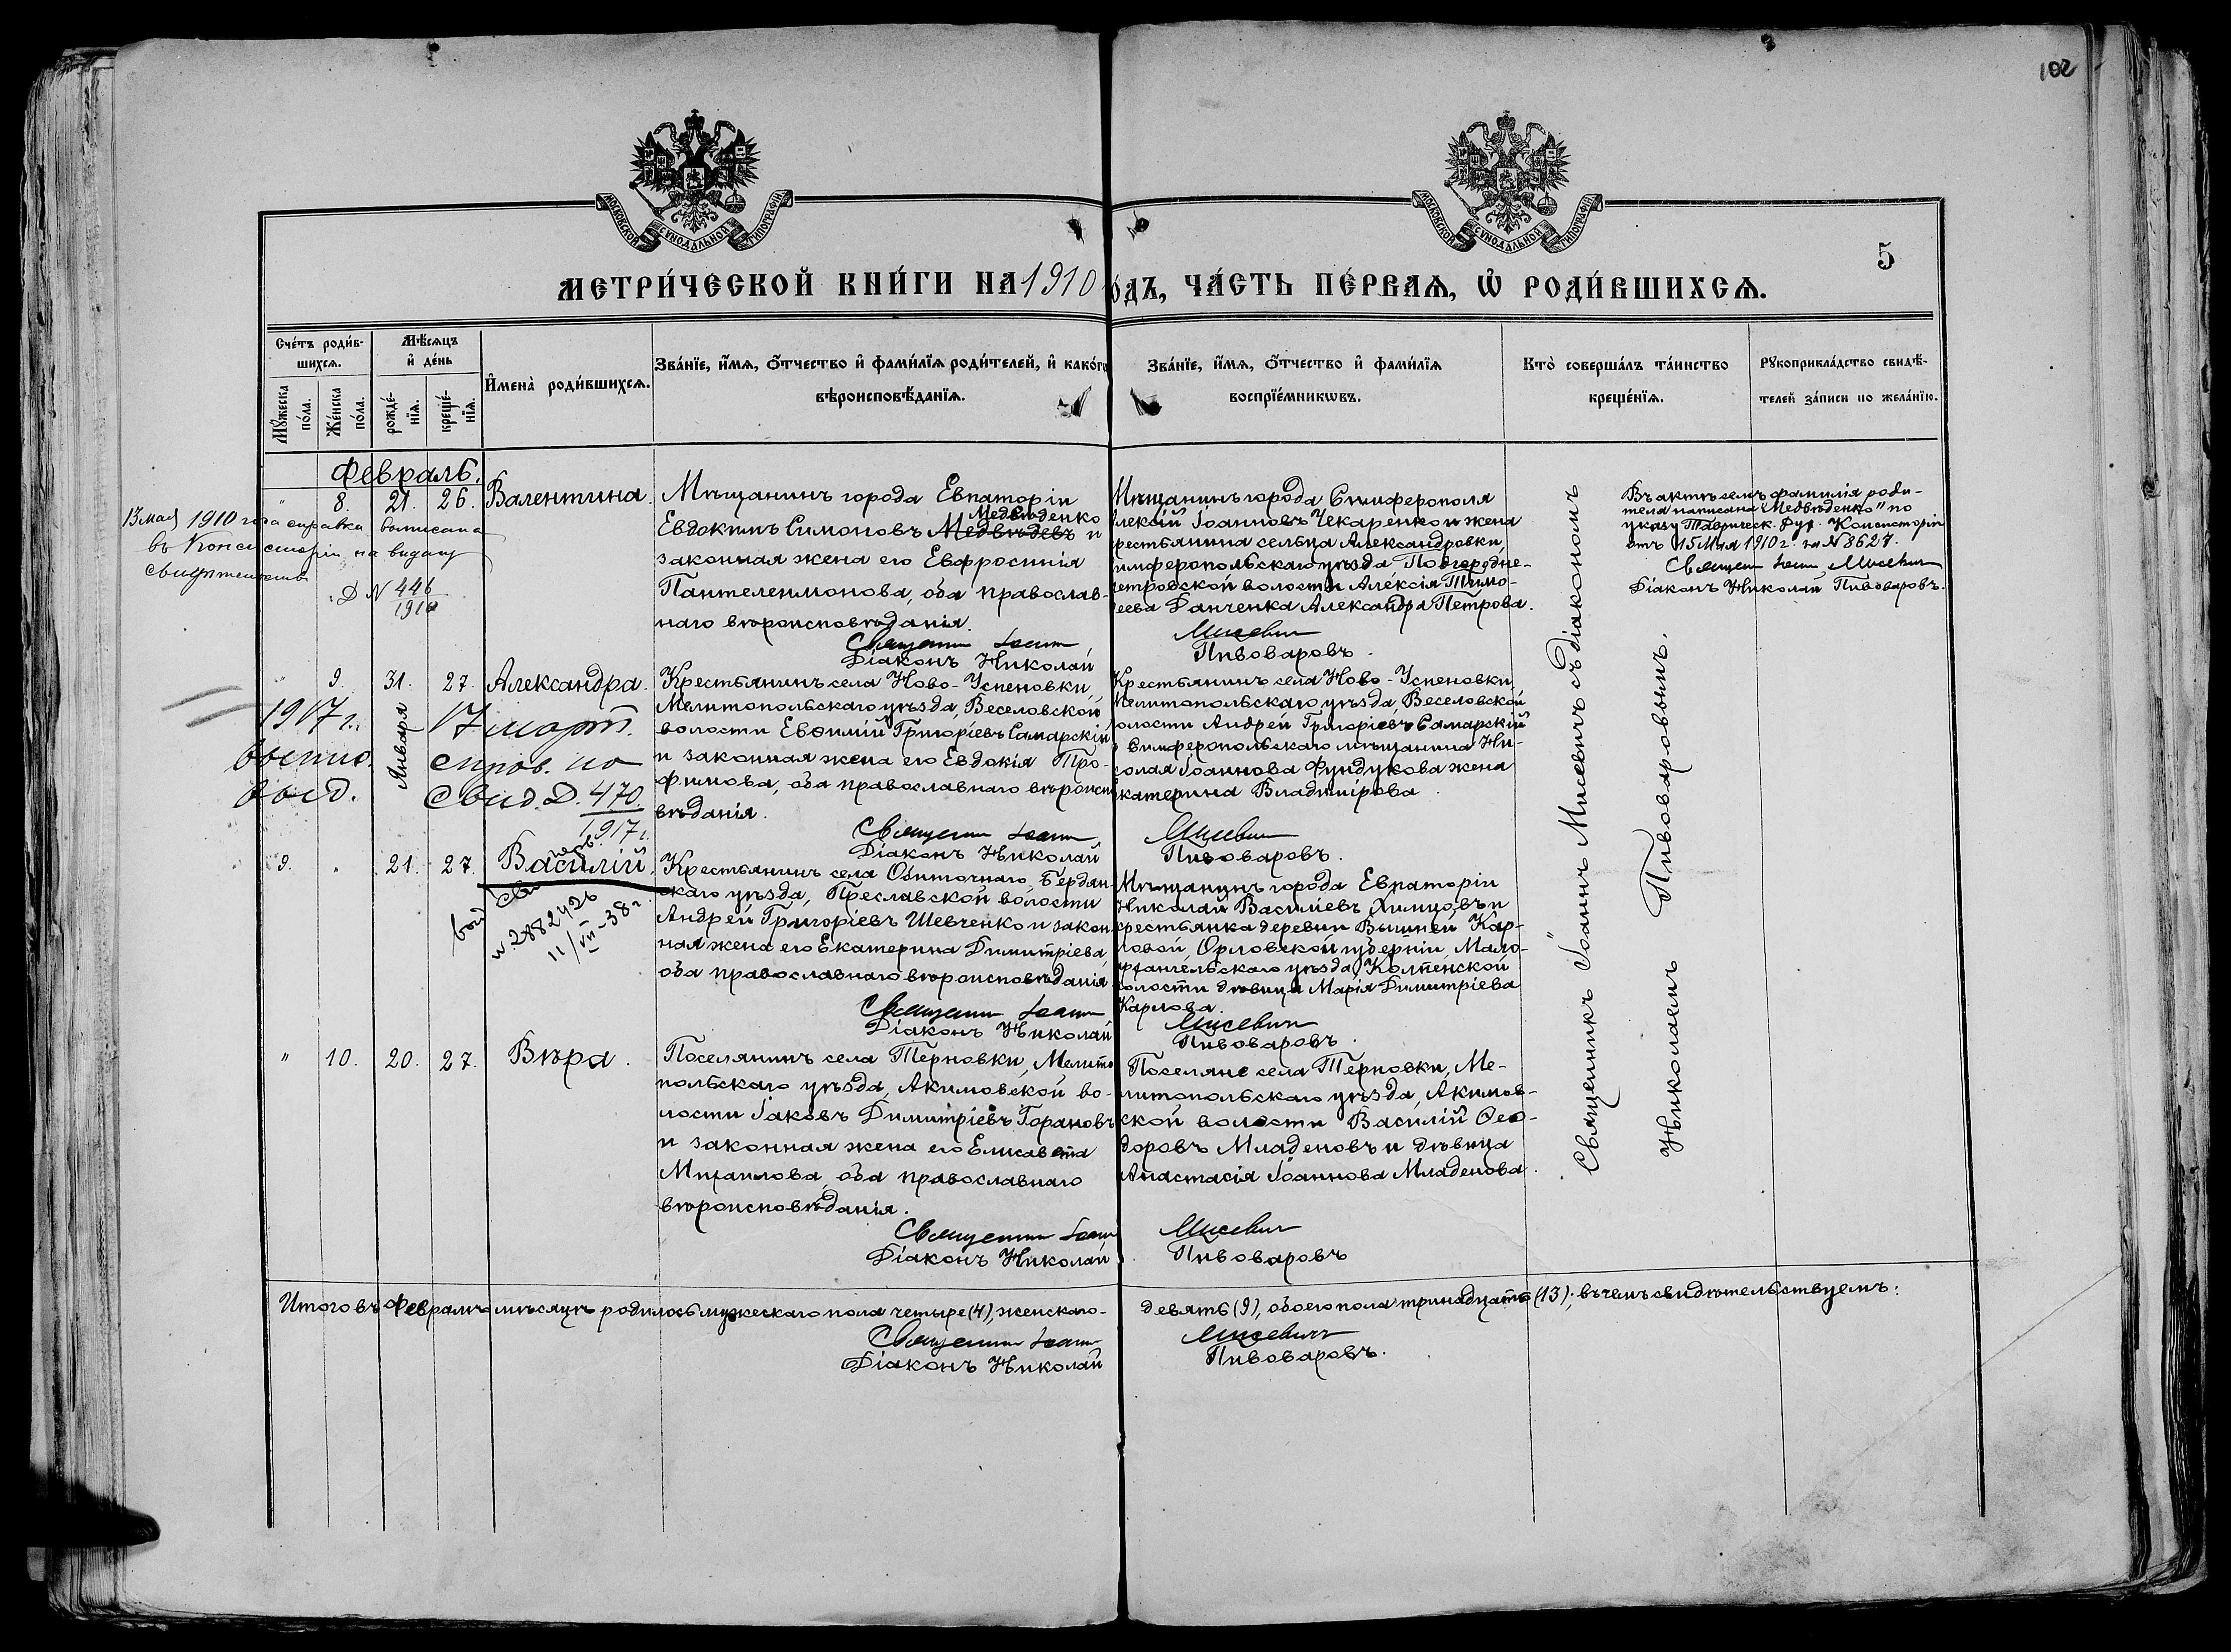 102
МОСКОВСКОЙ СѴНОДАЛЬНОЙ ТИПОГРАФІИ
МОСКОВСКОЙ СѴНОДАЛЬНОЙ ТИПОГРАФІИ
5
МЕТРИ́ЧЕСКОЙ КНИ́ГИ НА 1910 ОДЪ, ЧА́СТЬ ПЕ́РВАѦ, Ѡ РОДИ́ВШИХСѦ.
Сче́тъ роди́в-
шихсѧ.
Мꙋ́жеска по́ла.
Же́нска по́ла.
Мѣ́сѧцъ
и де́нь
рожде́-
нїѧ.
креще́-
нїѧ.
Имена̀ роди́вшихсѧ.
Зва́нїе, и́мѧ, о́тчество и фами́лїѧ роди́телей, и како́гѡ
вѣроисповѣ́данїѧ.
Зва́нїе, и́мѧ, о́тчество и фами́лїѧ
воспрїе́мникѡвъ.
Кто̀ соверша́лъ та́инство
креще́нїѧ.
Рꙋкоприкла́дство свидѣ́-
телей за́писи по жела́нїю.
Февраль.
" 8. 21. 26. Валентина.
Мѣщанинъ города Евпаторіи
Медвѣденко
Евдокимъ Симоновъ Медвѣдевъ и
законная жена его Евфросинія
Пантелеимонова, оба православ-
наго вѣроисповѣданія.
Священникъ Іоаннъ
Діаконъ Николай
Мѣщанинъ города Симферополя
лексій Іоанновъ Чекаренко и жена
рестьянина сельца Александровки,
имферопольскаго уѣзда Подгородне-
етровской волости Алексія Тимо-
еева Данченка Александра Петрова.
Мисевичъ
Пивоваровъ.
13 мая 1910 года справка выписана
въ Консисторіи на выдачу
свидѣтельства
Д № 446
1910
Въ актѣ семъ фамилія роди-
теля написана „Медвѣденко" по
указу Таврическ. Дух. Консисторіи
отъ 15 Мая 1910 г. за № 8627.
Священ Іоан Мисевич
Діаконъ Николай Пивоваровъ.
" 9. 31. 27. Александра.
Января
1917 г. 17 март.
выпис. справ. но
выд. Свид. Д. 470
1917 г.
Крестьянинъ села Ново-Успеновки,
Мелитопольскаго уѣзда, Веселовской
волости Евѳимій Григоріевъ Самарскій
и законная жена его Евдокія Тро-
фимова, оба православнаго вѣроиспо
вѣданія.
Священникъ Іоаннъ
Діаконъ Николай
Крестьянинъ села Ново-Успеновки,
Мелитопольскаго уѣзда, Веселовской
олости Андрей Григоріевъ Самарскій
Симферопольскаго мѣщанина Ни-
колая Іоаннова Фундукова жена
катерина Владимірова.
Мисевичъ
Пивоваровъ.
9. " 21. 27. Василій.
выд
№ 2882426
11/VII-38 г.
Крестьянинъ села Обиточнаго, Бердян
скаго уѣзда, Преславской волости
Андрей Григоріевъ Шевченко и закон
ная жена его Екатерина Димитріева,
оба православнаго вѣроисповѣданія.
Священникъ Іоаннъ
Діаконъ Николай
Мѣщанинъ города Евпаторіи
Николай Василіевъ Химцовъ и
крестьянка деревни Вышней Кар-
ловой, Орловской губерніи, Мало-
рхангельскаго уѣзда, Колпенской
волости дѣвица Марія Димитріева
Карлова.
Мисевичъ
Пивоваровъ.
" 10. 20. 27. Вѣра.
Поселянинъ села Терновки, Мелито
польскаго уѣзда, Акимовской во-
лости Іаковъ Димитріевъ Горановъ
и законная жена его Елисавета
Михаилова, оба православнаго
вѣроисповѣданія.
Священникъ Іоаннъ
Діаконъ Николай
Поселяне села Терновки, Ме-
литопольскаго уѣзда, Акимов-
ской волости Василій Ѳео-
доровъ Младеновъ и дѣвица
Анастасія Іоаннова Младенова.
Мисевичъ
Пивоваровъ
Священникъ Іоаннъ Мисевичъ съ діакономъ
Николаемъ Пивоваровымъ.
Итого въ Февралѣ мѣсяцѣ родилось мужескаго пола четыре (4), женскаго- девять (9), обоего пола тринадцать (13); въ чемъ свидѣтельствуемъ:
Священникъ Іоаннъ Мисевичъ
Діаконъ Николай Пивоваровъ.